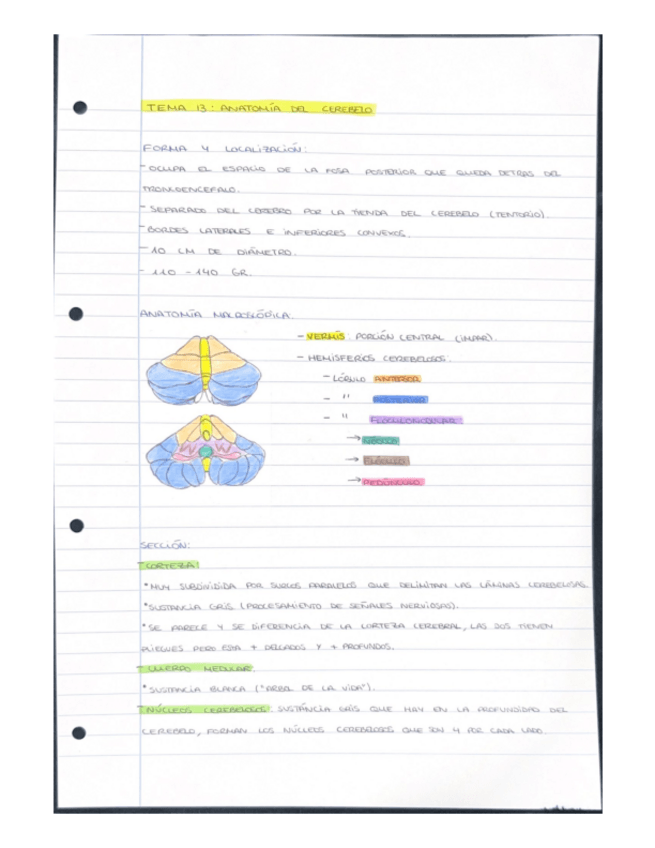 TEMA 13: ANATOMÍA DEL CEREBELO
FORMA Y LOCALIZACIÓN:
- OCUPA EL ESPACIO DE LA FOSA POSTERIOR QUE QUEDA DETRÁS DEL
TRONCOENCÉFALO.
- SEPARADO DEL CEREBRO POR LA TIENDA DEL CEREBELO (TENTORIO).
- BORDES LATERALES E INFERIORES CONVEXOS.
- 10 CM DE DIÁMETRO.
- 110 - 140 GR.
ANATOMÍA MACROSCÓPICA:
- VERMIS: PORCIÓN CENTRAL (IMPAR).
- HEMISFERIOS CEREBELOSOS:
- LÓBULO ANTERIOR
- " POSTERIOR
- " FLOCULONODULAR
→ NÓDULO
→ FLÓCULO
→ PEDÚNCULO
SECCIÓN:
- CORTEZA:
* MUY SUBDIVIDIDA POR SURCOS PARALELOS QUE DELIMITAN LAS LÁMINAS CEREBELOSAS.
* SUSTANCIA GRIS (PROCESAMIENTO DE SEÑALES NERVIOSAS).
* SE PARECE Y SE DIFERENCIA DE LA CORTEZA CEREBRAL, LAS DOS TIENEN
PLIEGUES PERO ESTA + DELGADOS Y + PROFUNDOS.
- CUERPO MEDULAR:
* SUSTANCIA BLANCA ("ARBOL DE LA VIDA").
- NÚCLEOS CEREBELOSOS: SUSTÁNCIA GRIS QUE HAY EN LA PROFUNDIDAD DEL
CEREBELO, FORMAN LOS NÚCLEOS CEREBELOSOS QUE SON 4 POR CADA LADO.